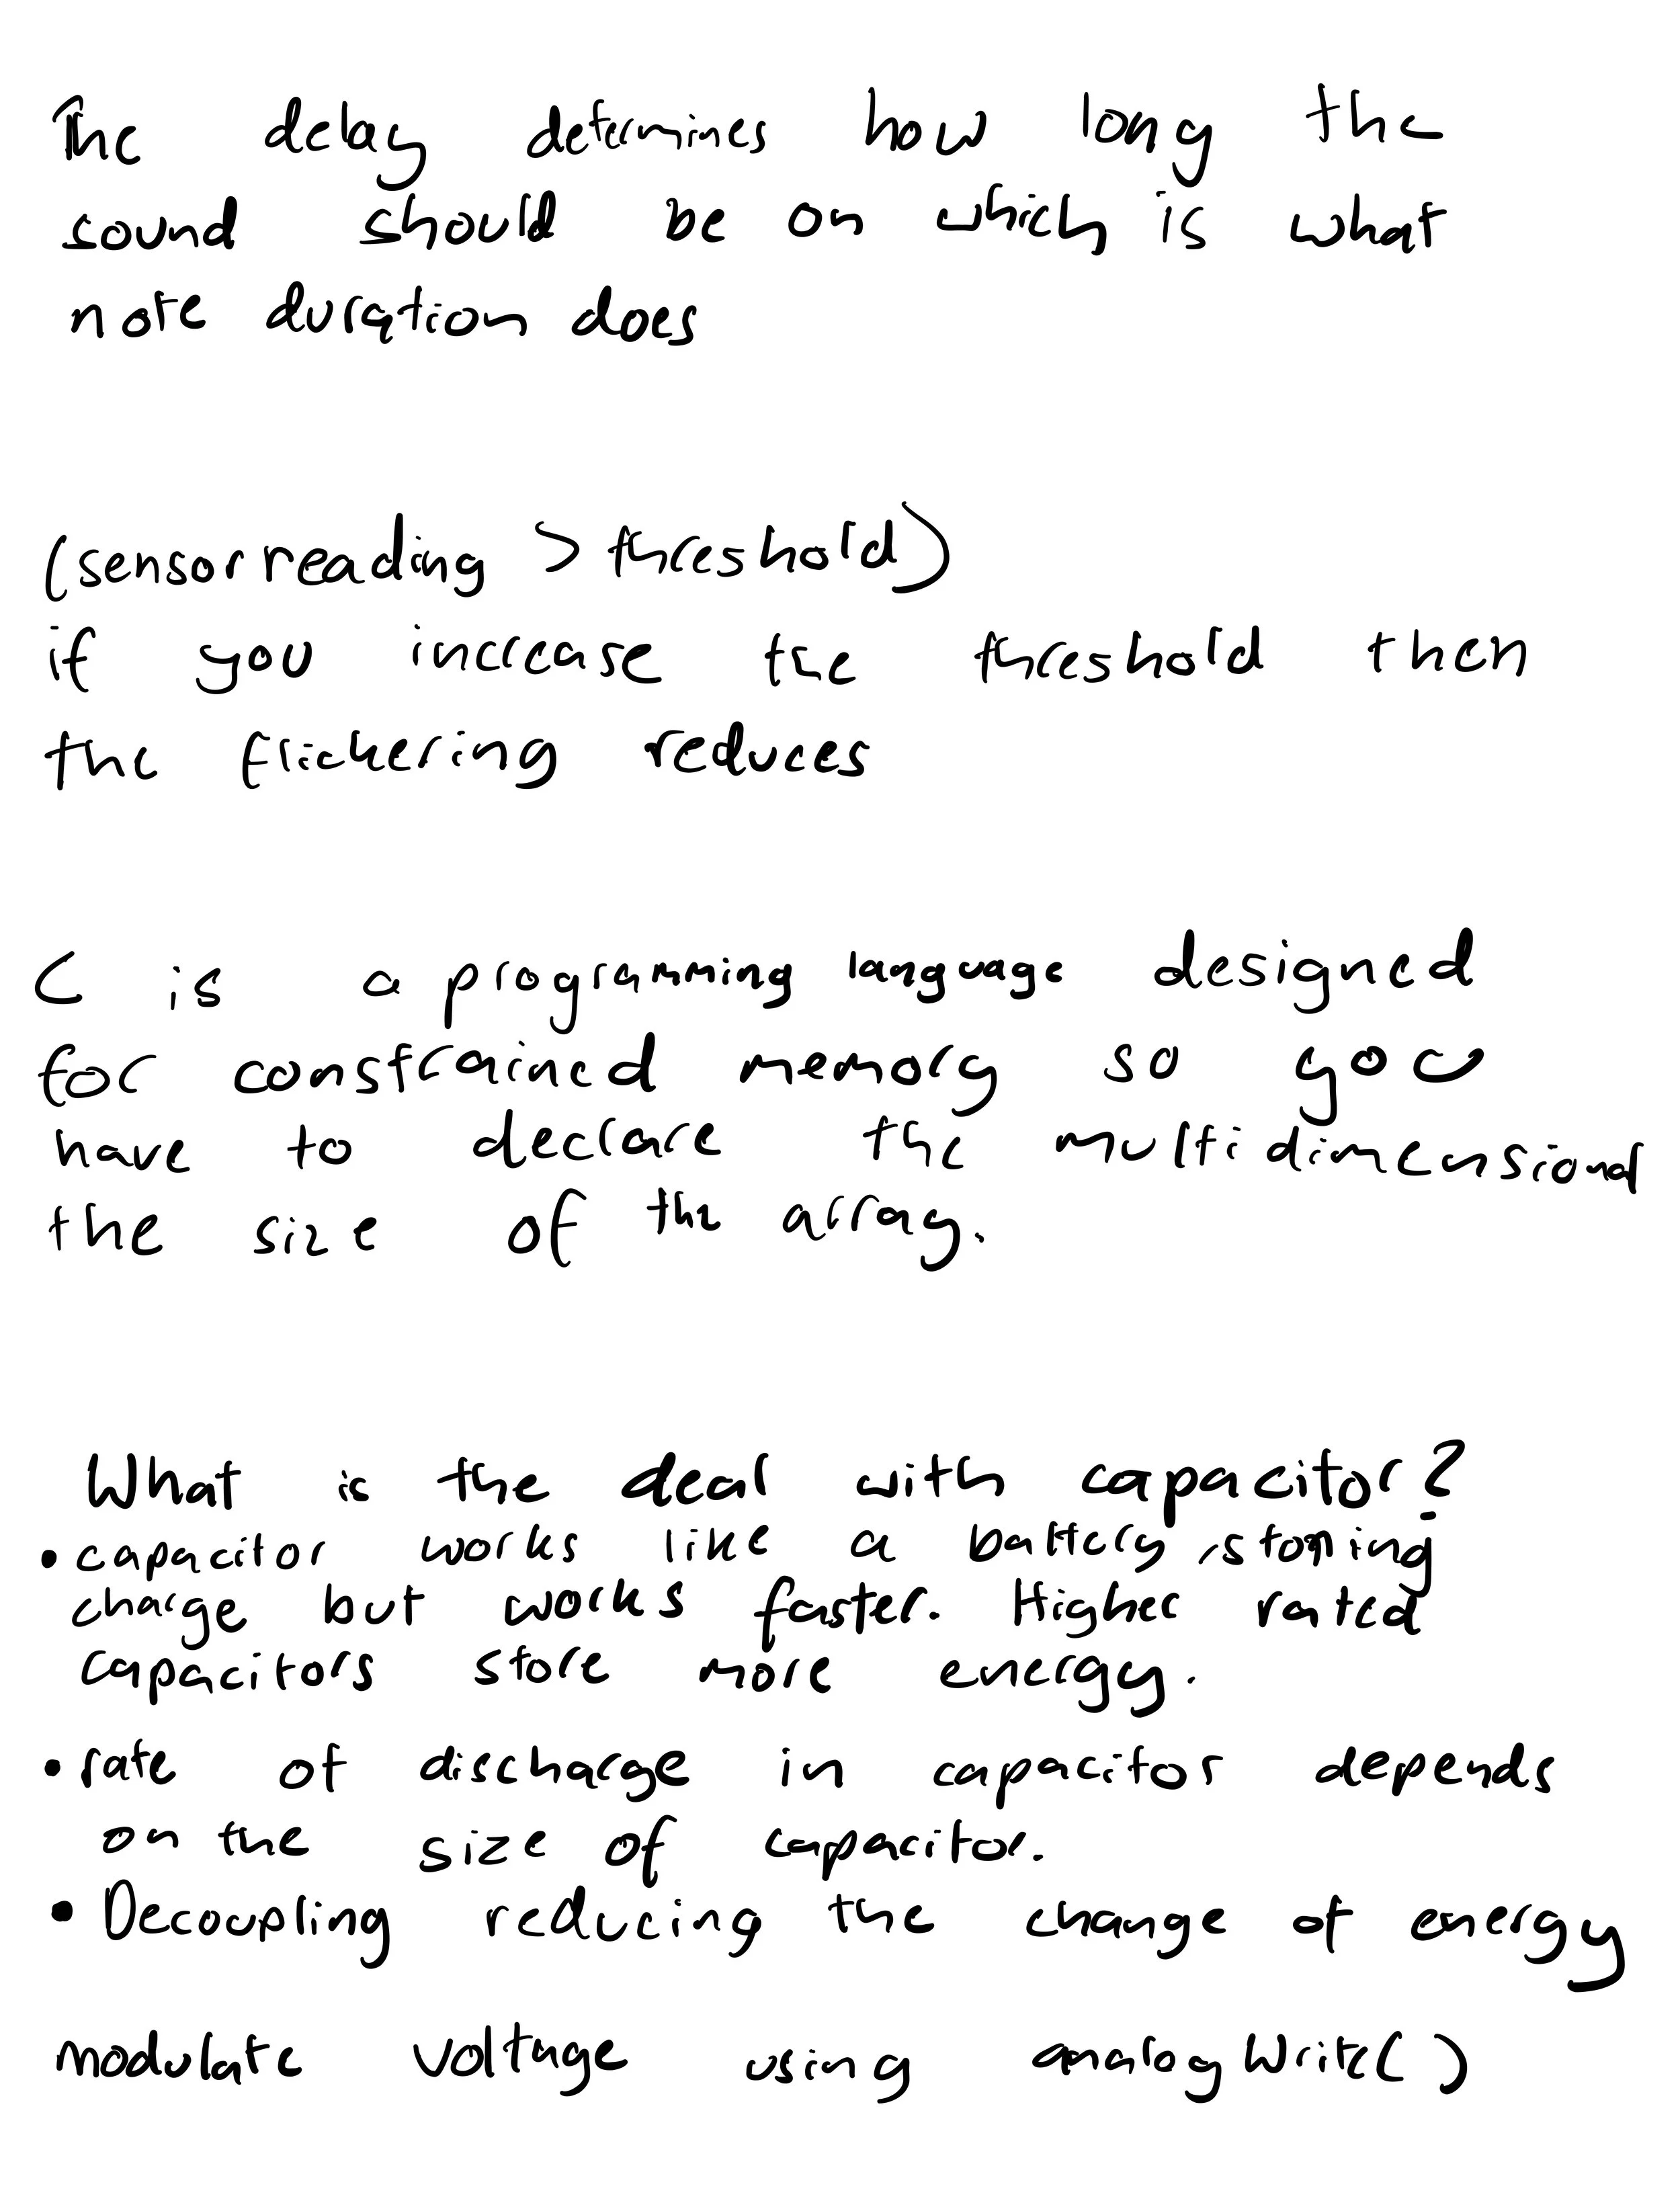 The delay determines how long the
sound should be on which is what
note duration does
(sensorreading > threshold)
if you increase the threshold then
the flickering reduces
C is a programming language designed
for constrained memory so you
have to declare the multidimensional
the size of the array.
What is the deal with capacitor?
• capacitor works like a battery, storing
charge but works faster. Higher rated
capacitors store more energy.
• rate of discharge in capacitor depends
on the size of capacitor.
• Decoupling reducing the change of energy
modulate voltage using analogWrite()